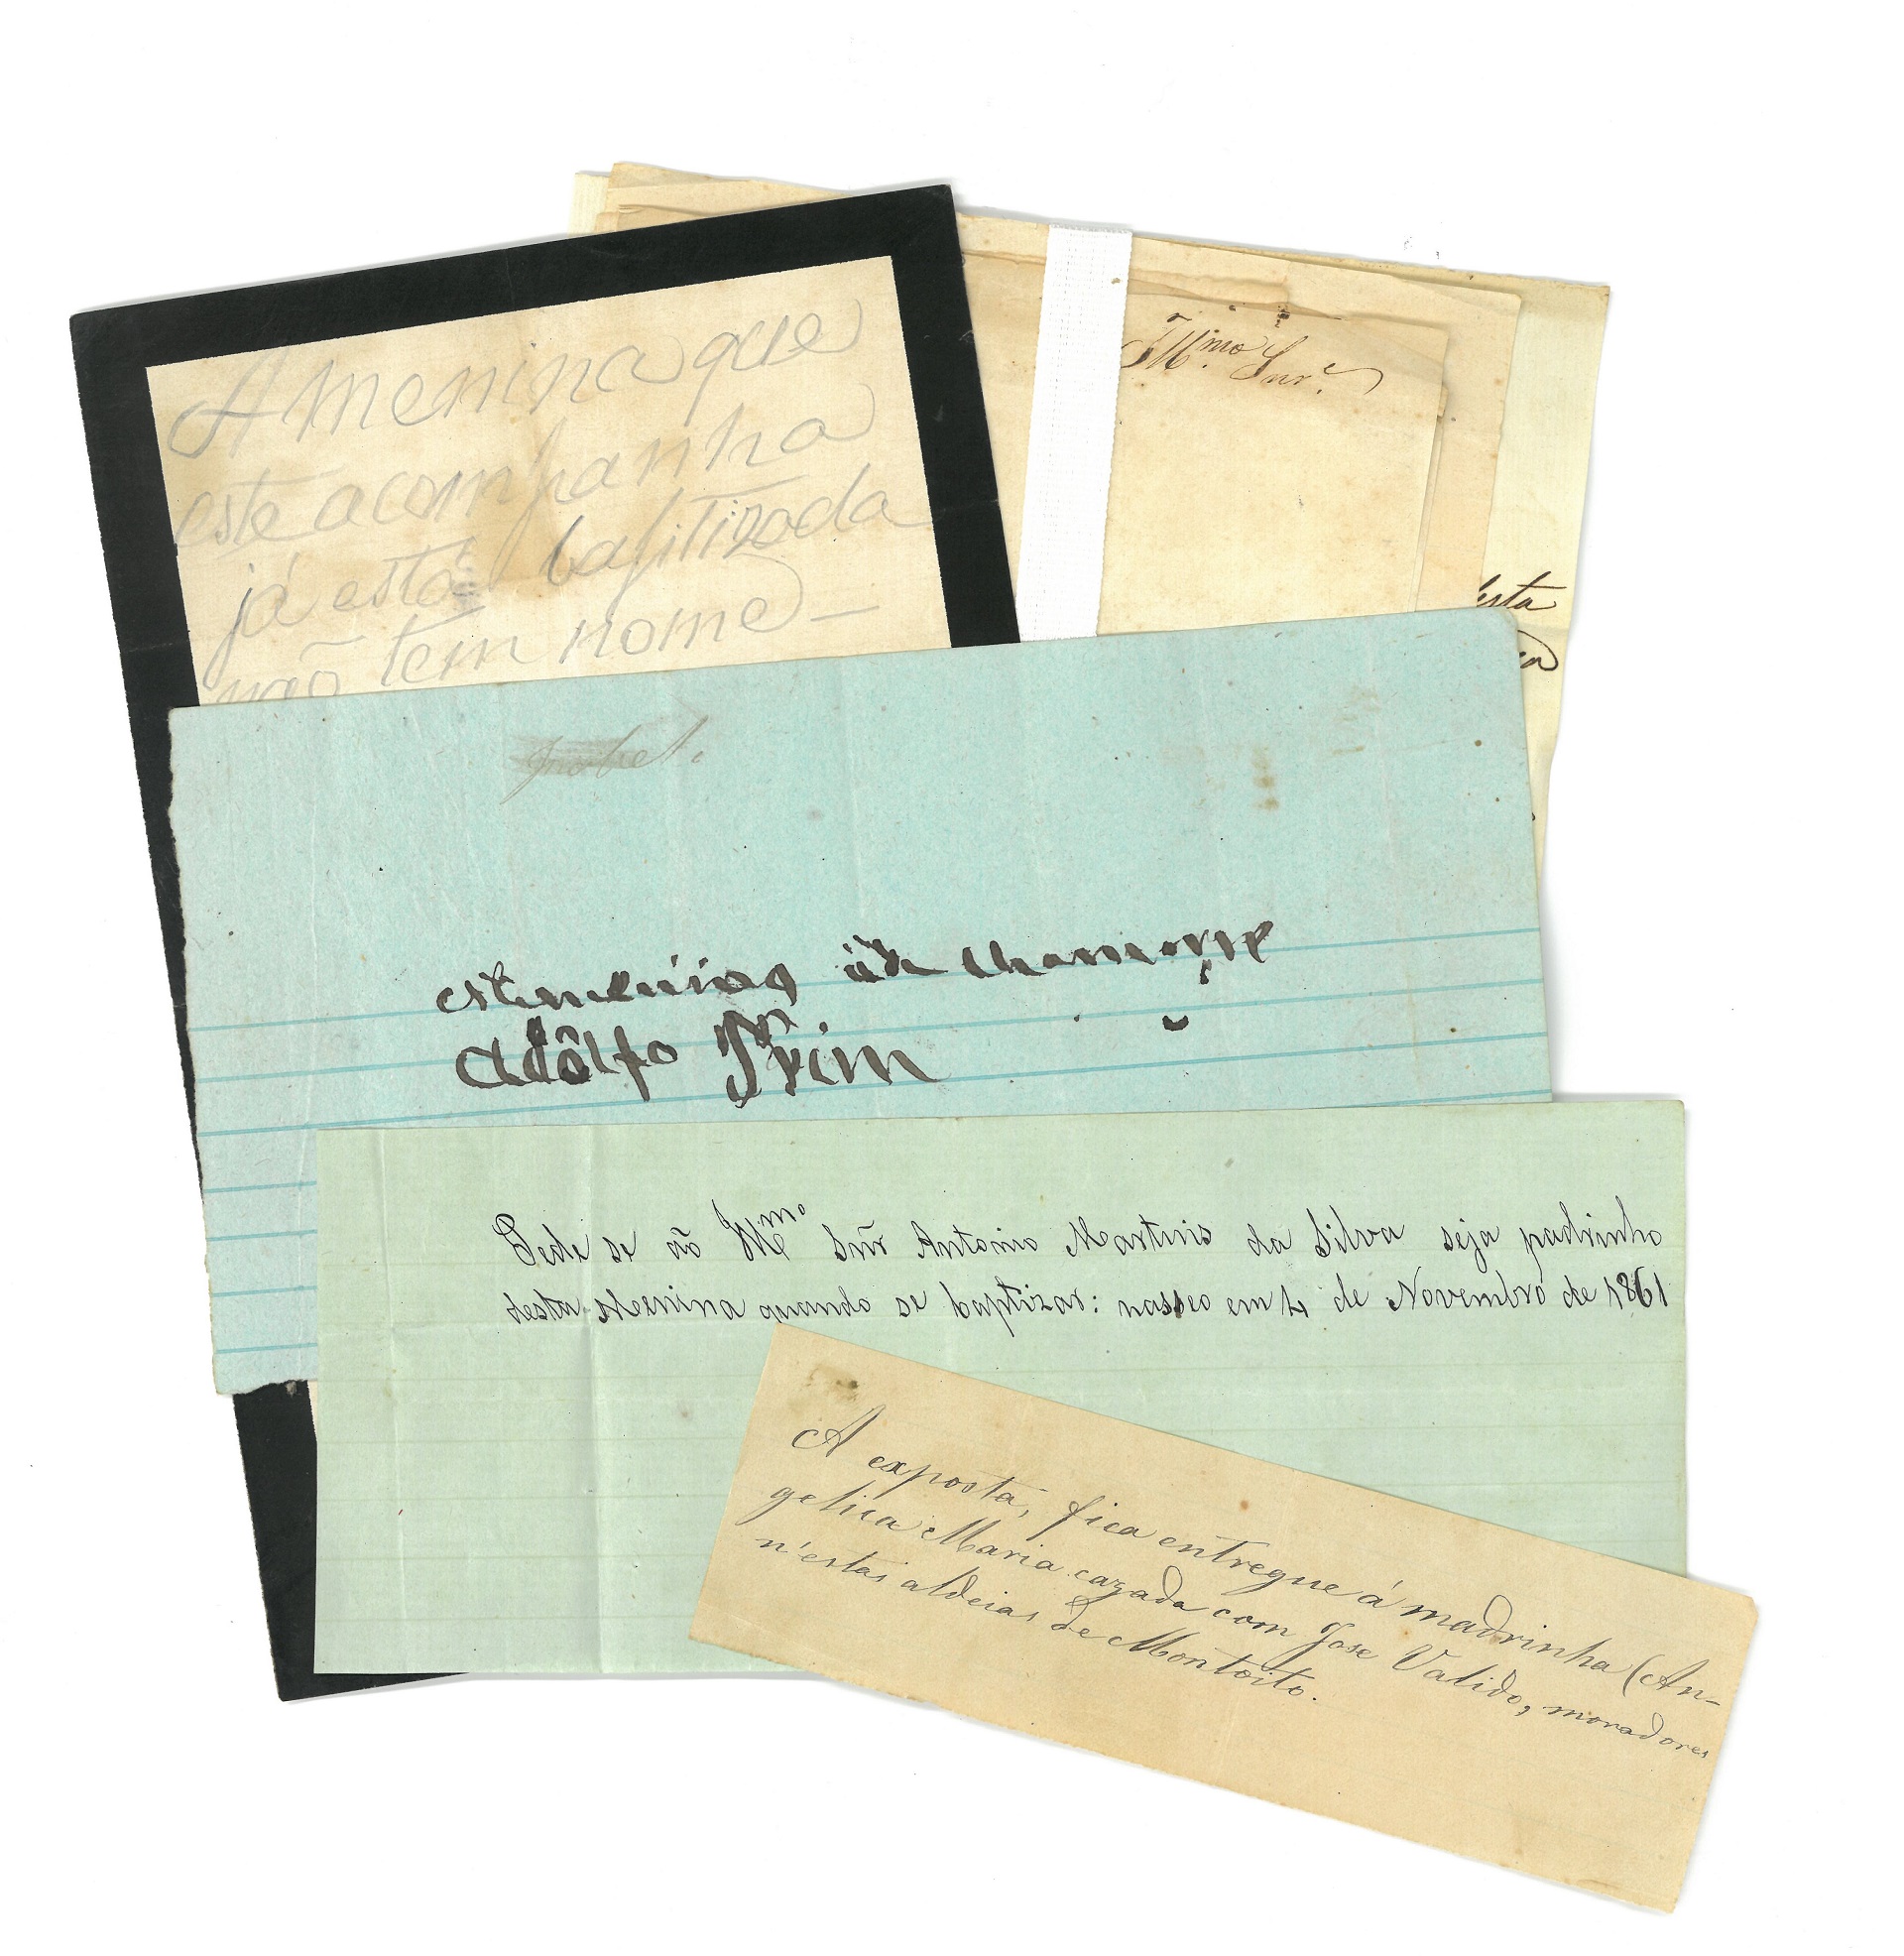 A menina que
este acompanha
já está baptizada
não tem nome –
Illmo. Snr.
desta
estemenino áde chamarçe
Adôlfo Prim
Pede se ao Illmo Snr Antonio Martinis da Silva seja padrinho
desta Menina quando se baptizar: nasseo em 4 de Novembro de 1861
A exposta, fica entregue á madrinha (An-
gelica Maria cazada com Jose Valido, moradores
n'estas aldeias de Montoito.